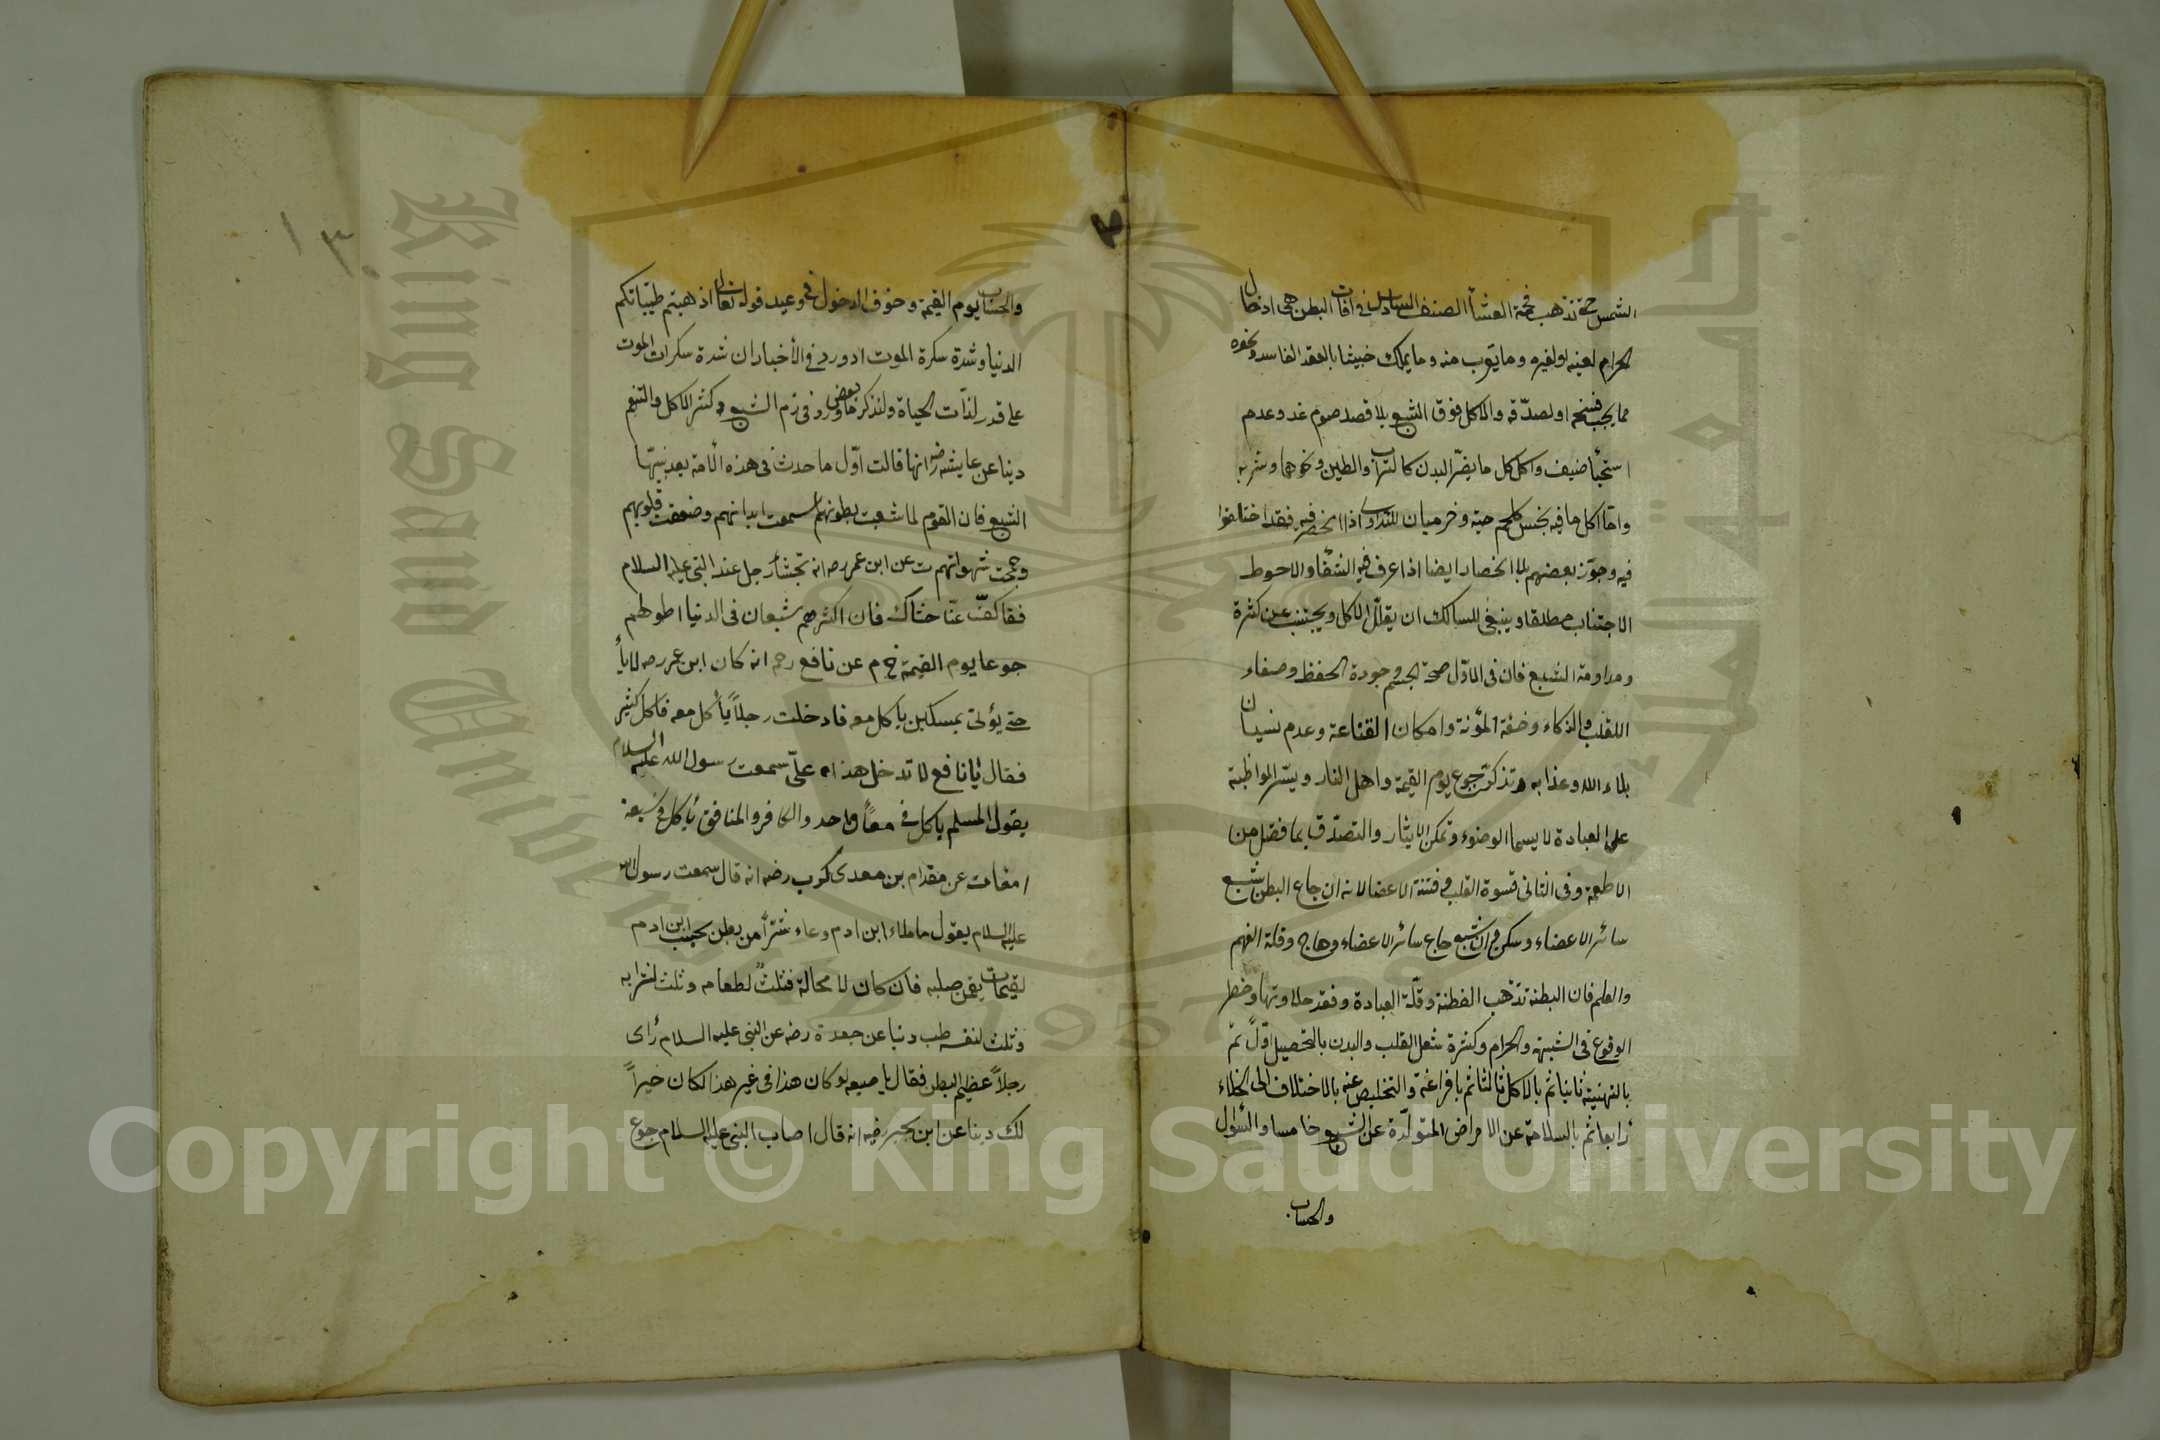 الشمس حتى تذهب فحمة العشأ الصنف السادس في افات البطن هي ادخال
الحرام لعينه او لغيره وما يتوب منه وما يملك خبيثا بالعقد الفاسد ونحوه
مما يجب فسخه او تصدّقه والاكل فوق الشبع بلا قصد صوم غد وعدم
استحيأ ضيف واكل كل ما يضرّ البدن كالتراب والطين ونحوهما وشربه
وامّا اكل ما فيه نجس كلحم حية وخرميان للتداوى اذا انحصر فيه فقد اختلفوا
فيه وجوّز بعضهم بلا انحصار ايضا اذا عرف فيه الشفأ والاحوط
الاجتناب مطلقا وينبغى للسالك ان يقلّل الاكل ويجتنب عن كثرة
ومداومة الشبع فان فى الاوّل صحة الجسم وجودة الحفظ وصفاء
القلب والذكاء وخفة المؤنة وامكان القناعة وعدم نسيان
بلاء الله وعذابه وتذكّر جوع يوم القيمة واهل النار ويسّر المواظبة
على العبادة لا سيما الوضوء وتمكن الايثار والتصدّق بما فضل من
الاطعمة وفى الثانى قسوة القلب وفتنة الاعضا لانه ان جاع البطن شبع
سائر الاعضاء وسكن وان شبع جاع سائر الاعضاء وهاج وقلة الفهم
والعلم فان البطنة تذهب الفطنة وقلّة العبادة وفقد حلاوتها وخطر
الوقوع فى الشبهة والحرام وكثرة شغل القلب والبدن بالتحصيل اوّلاً ثمّ
بالتهيئة ثانيا ثم بالاكل ثالثا ثم بافراغه والتخليص عنه بالاختلاف الى الخلاء
رابعا ثم بالسلامة عن الامراض المتولّدة عن الشبع خامسا والسؤال
والحساب
٣ ١
والحساب يوم القيمة وخوف الدخول فى وعيد قوله تعالى اذهبتم طيّباتكم
الدنيا وشدة سكرة الموت اذ ورد فى الأخبار ان شدة سكرات الموت
على قدر لذّات الحياة ولنذكر بعض ما ورد فى ذم الشبع وكثر الاكل والتنعم
دنيا عن عايشه رضه انها قالت اوّل ما حدث فى هذه الأمة بعد نبيّها
الشبع فان القوم لما شبعت بطونهم سمعت ابدانهم وضعفت قلوبهم
وجمحت شهواتهم ت عن ابن عمر رضه انه تجشأ رجل عند النبى عليه السلام
فقا كفّ عنّا جشاك فان اكثرهم شبعان فى الدنيا اطولهم
جوعا يوم القيمة خ م عن نافع رحمه انه كان ابن عمر رضه لا يأ
حتى يؤتى بمسكين ياكل معه فادخلت رجلاً يأكل معه فاكل كثير
فقال يا نافع لا تدخل هذا علىّ سمعت رسول الله عليه السلام
يقول المسلم ياكل فى معأ واحد والكافر والمنافق يأكل فى سبعة
امعات عن مقدام بن معدى كرب رضه انه قال سمعت رسول الله
عليه السلام يقول ما ملاء ابن ادم وعاء شرّاً من بطن بحسب ابن ادم
لقيمات يقمن صلبه فان كان لا محالة فثلثٌ لطعامه وثلث لشرابه
وثلث لنفسه طب دنيا عن جعدة رضه عن النبى عليه السلام رأى
رجلاً عظيم البطن فقال باصبعه لو كان هذا فى غير هذا لكان خيراً
لك دنيا عن ابن بجير رضه انه قال اصاب النبى عليه السلام جوع
King Saud University
1957
Copyright © King Saud University